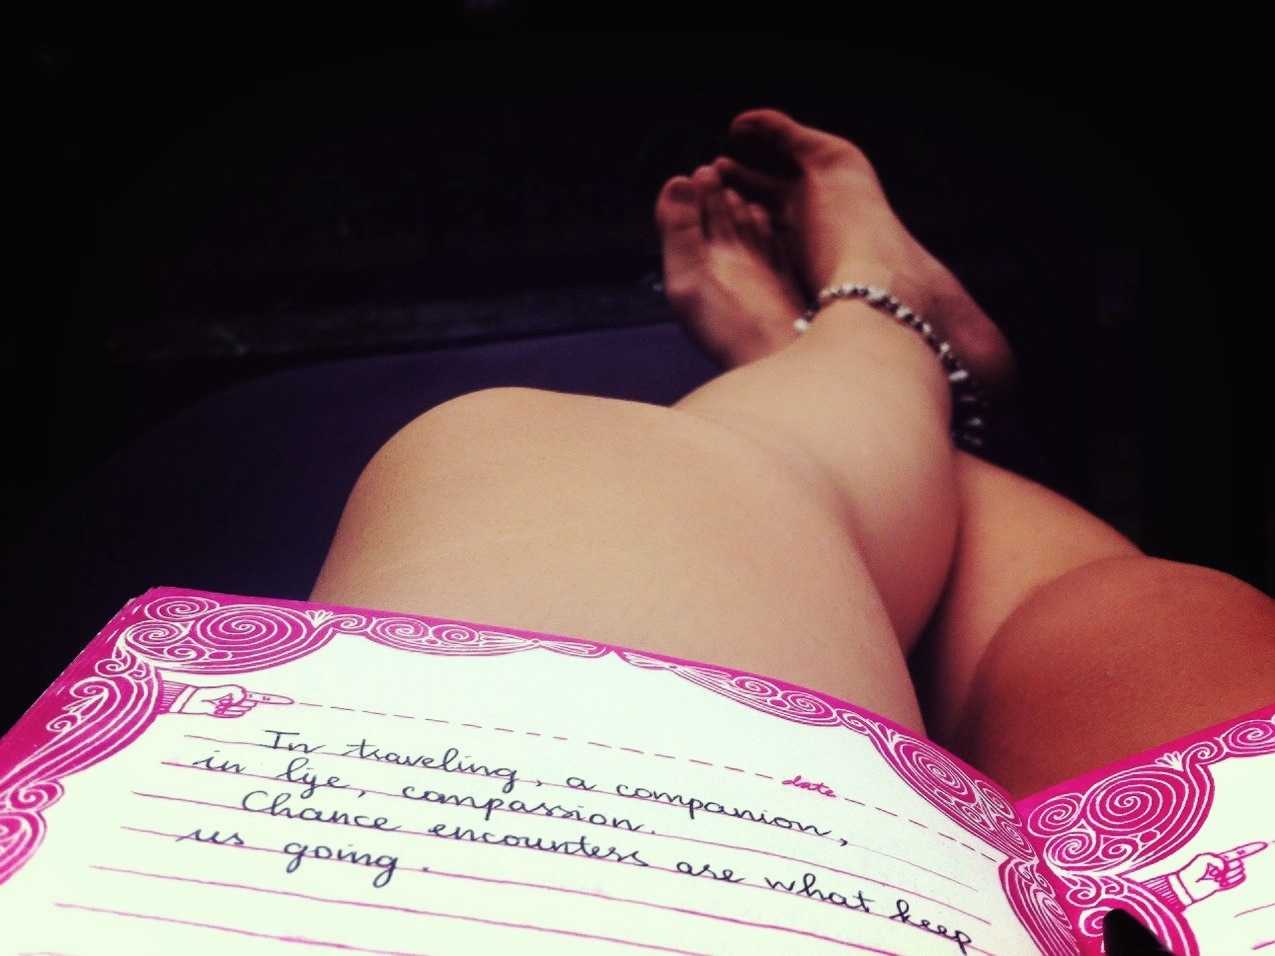 date
In traveling, a companion,
in life, compassion.
Chance encounters are what keep
us going.